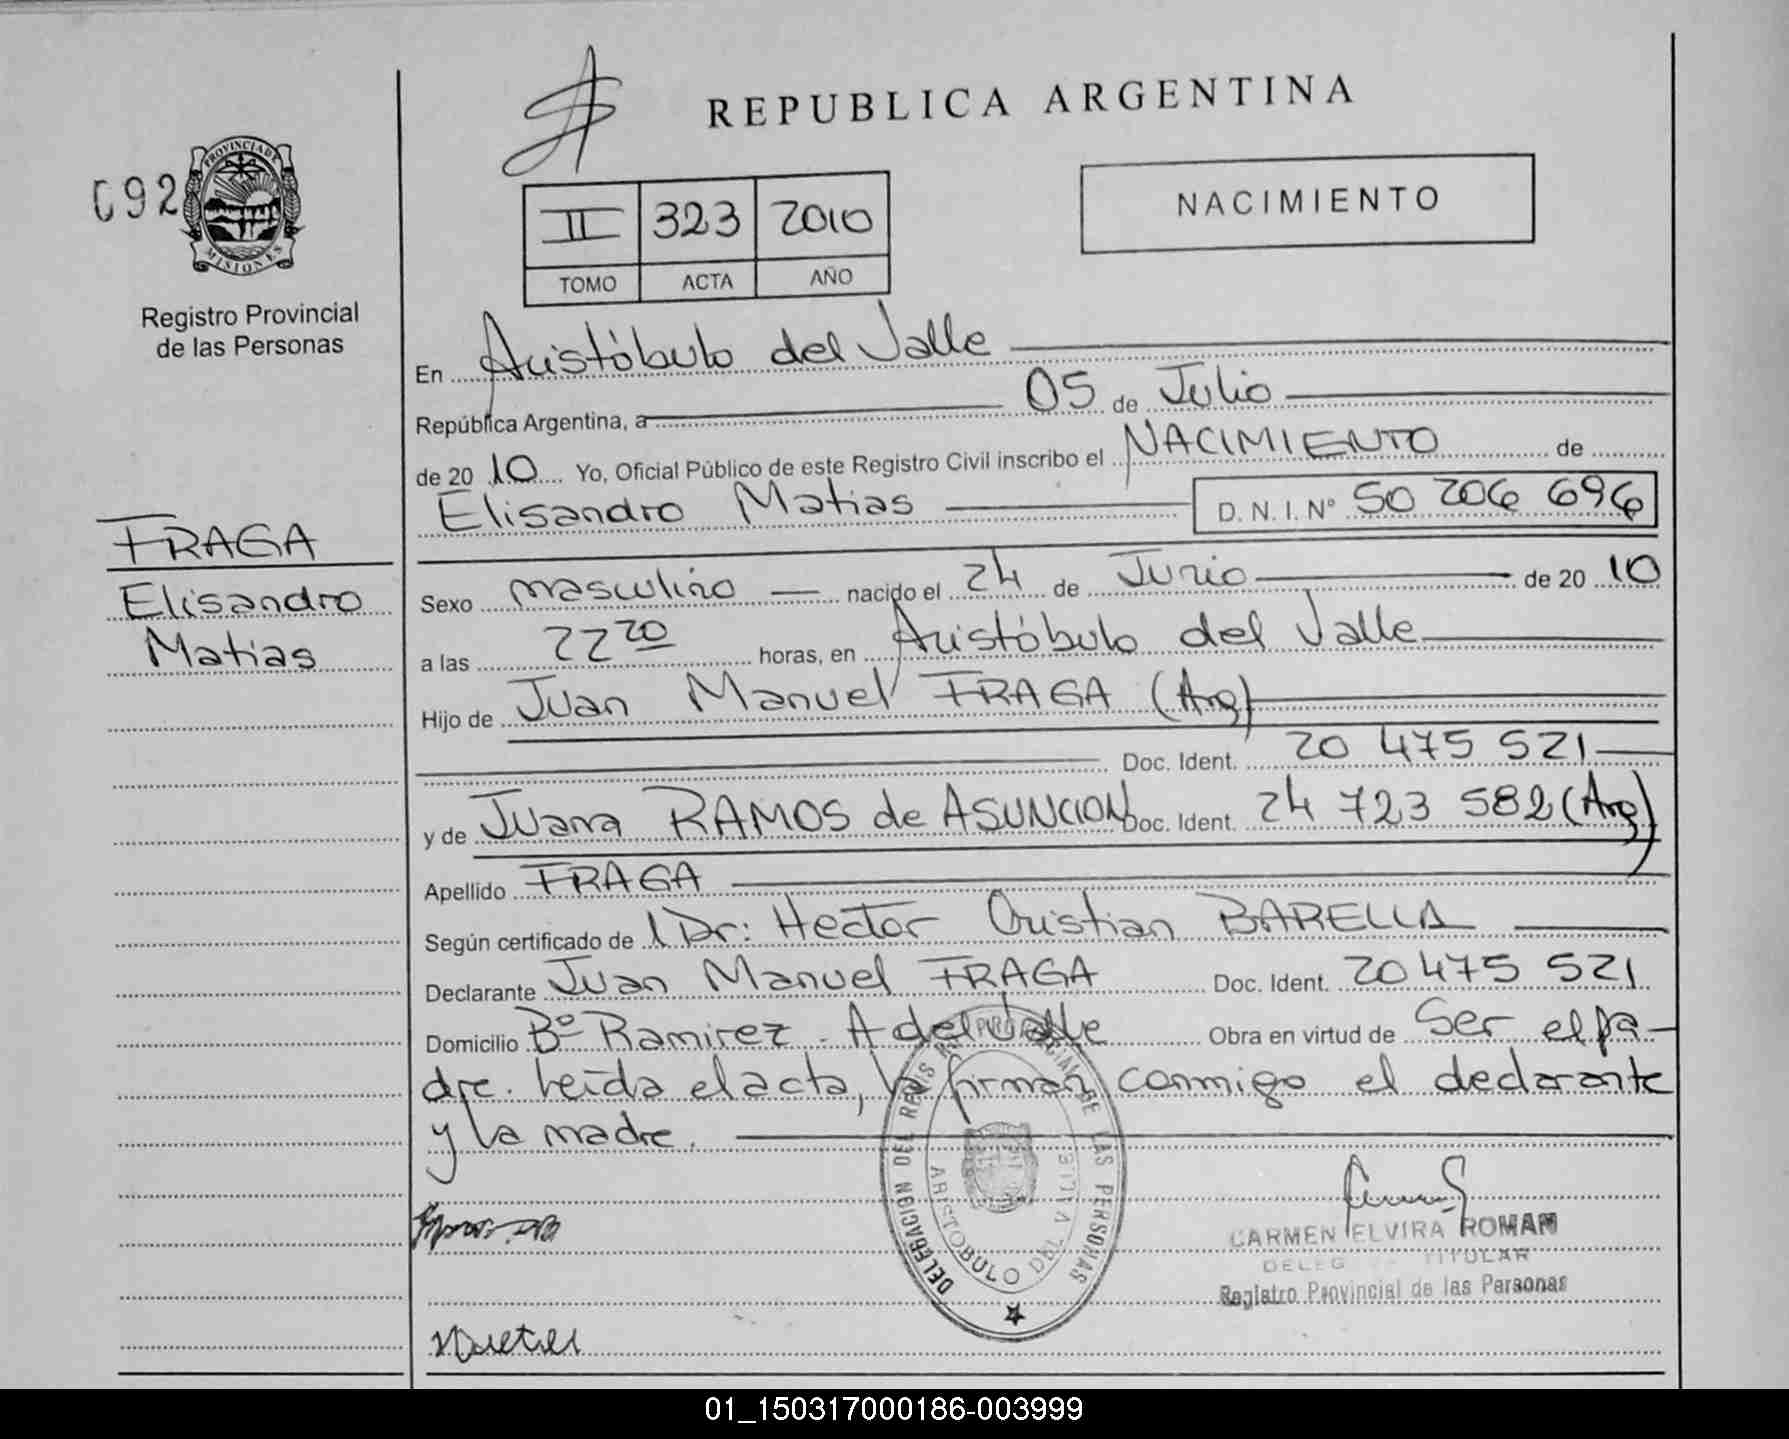 REPUBLICA ARGENTINA
092
PROVINCIA DE
MISIONES
Registro Provincial
de las Personas
II 323 2010
TOMO ACTA AÑO
NACIMIENTO
En Aristóbulo del Valle
República Argentina, a 05 de Julio
de 20 10 Yo, Oficial Público de este Registro Civil inscribo el NACIMIENTO de
Elisandro Matias D. N. I. Nº 50 206 696
FRAGA
Elisandro
Matias
Sexo masculino nacido el 24 de Junio de 20 10
a las 22 20 horas, en Aristóbulo del Valle
Hijo de Juan Manuel FRAGA (Arg)
Doc. Ident. 20 475 521
y de Juana RAMOS de ASUNCION Doc. Ident. 24 723 582 (Arg)
Apellido FRAGA
Según certificado de Dr: Hector Cristian BARELLA
Declarante Juan Manuel FRAGA Doc. Ident. 20 475 521
Domicilio Bº Ramirez - A del Valle Obra en virtud de Ser el pa-
dre. Leida el acta, la firman conmigo el declarante
y la madre.
DELEGACION DEL REGIS PROVINCIAL DE LAS PERSONAS
ARISTOBULO DEL VALLE
CARMEN ELVIRA ROMAN
DELEG TITULAR
Registro Provincial de las Personas
01_150317000186-003999